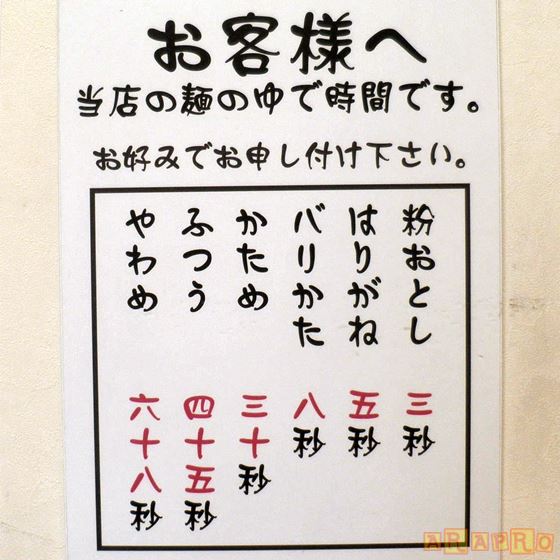 お客様へ
当店の麺のゆで時間です。
お好みでお申し付け下さい。
粉おとし 三秒
はりがね 五秒
バリかた 八秒
かため 三十秒
ふつう 四十五秒
やわめ 六十八秒
ARAPRO